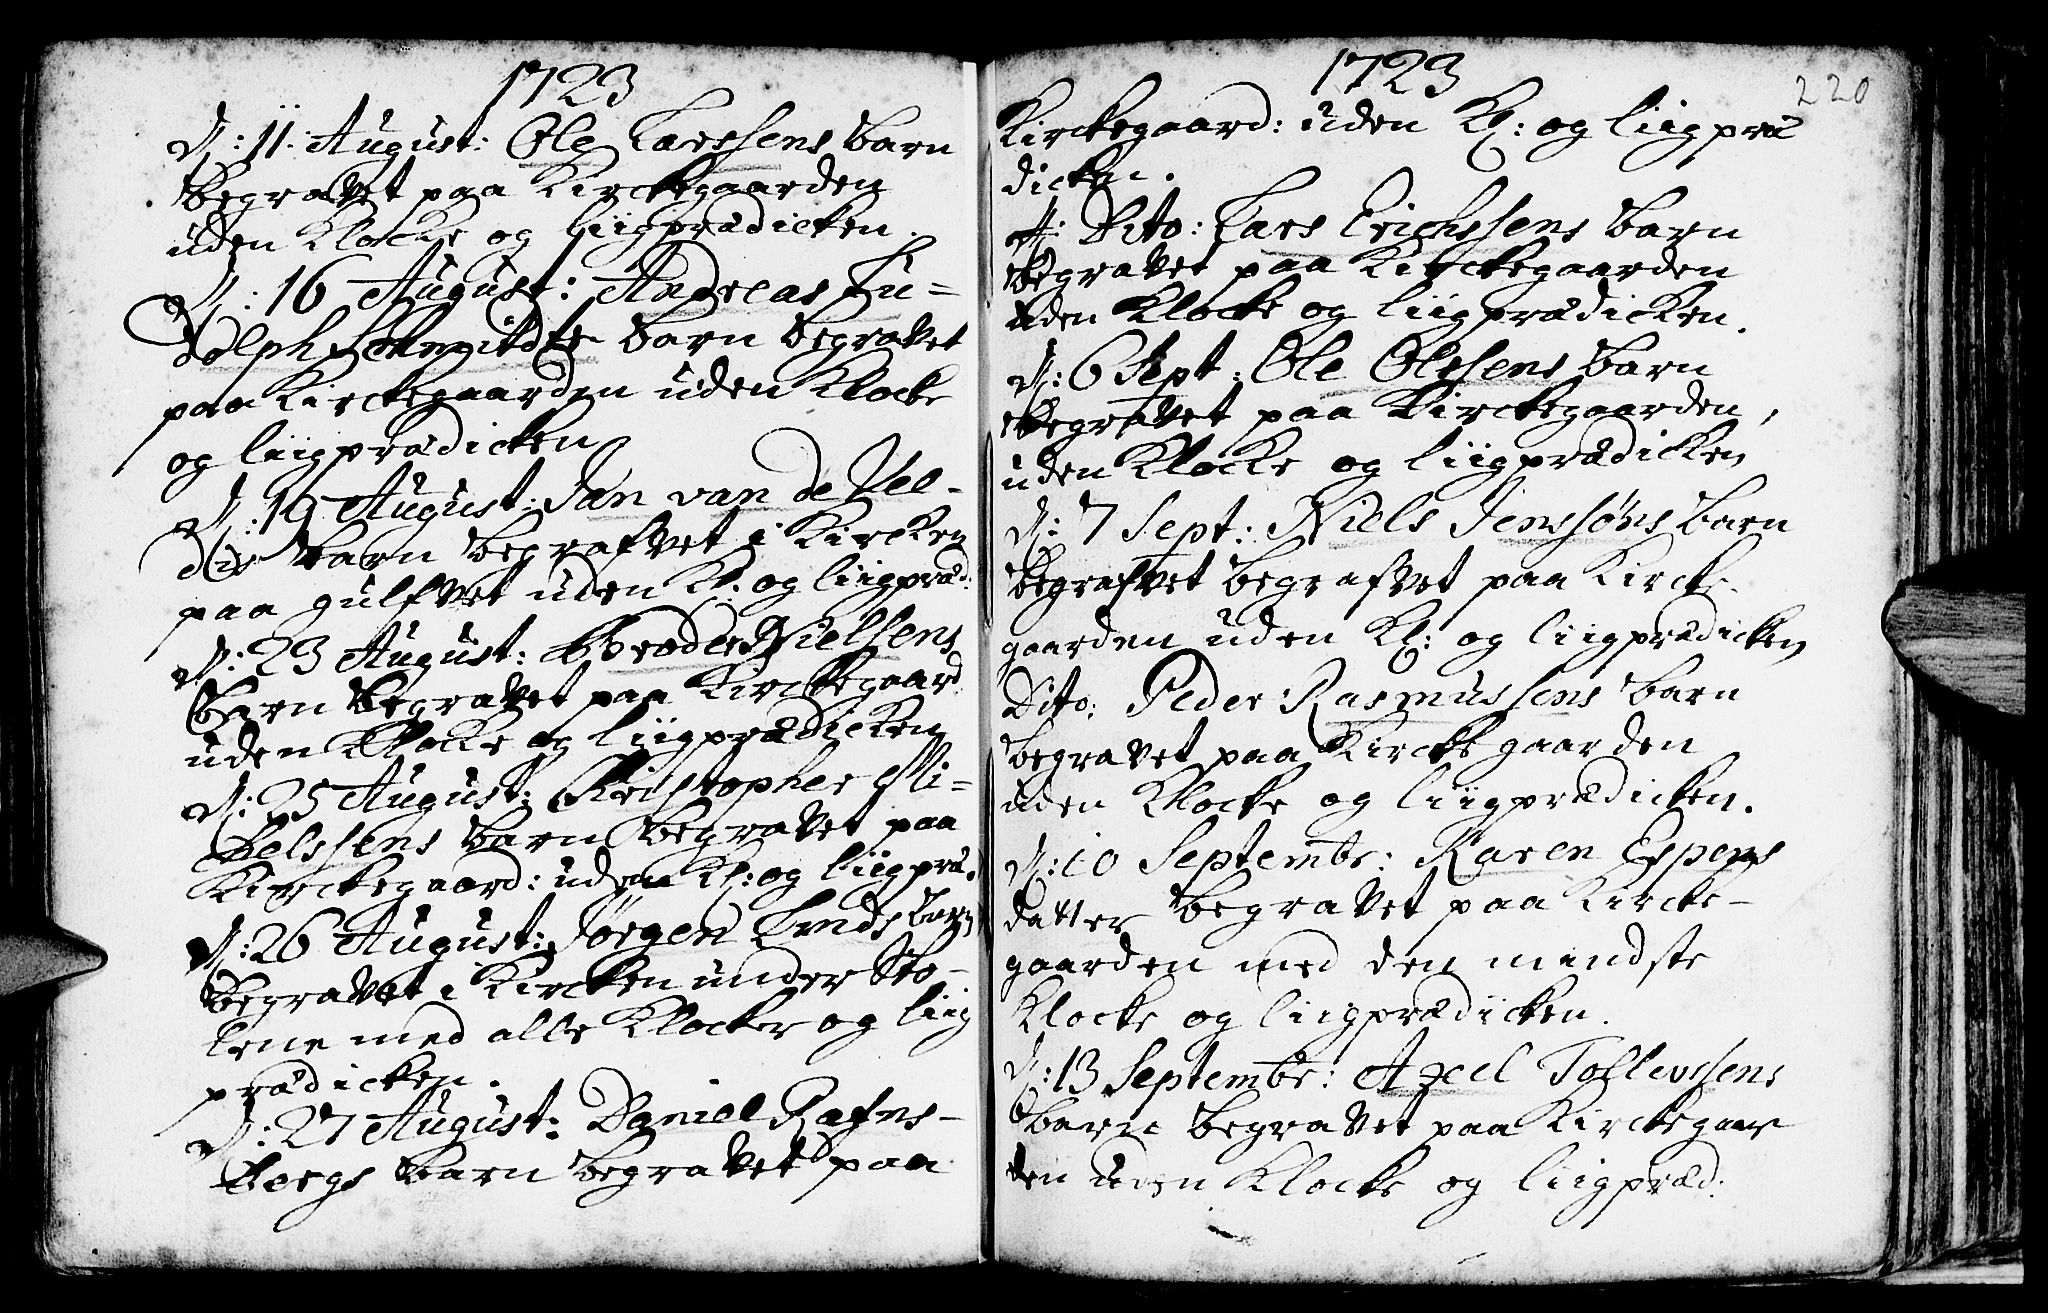 1723
D: 11. August: Ole Larssens barn
begravet paa Kirckegaarden
uden Klocke og liigprædicken.
D: 16 August: Andreas Lu-
dolph Schmidts barn begravet
paa Kirckegaarden uden Klocke
og liigprædicken
D: 19 August: Jan van de Vel-
des barn begrafvet i Kircken
paa gulfvet uden Kl: og liigpræd:
D: 23 August: Broder Nielsens
barn begravet paa Kirckegaard
uden Klocke og liigprædicken
D: 25 August: Christopher Mi-
kelssens barn begravet paa
Kirckegaard: uden Kl: og liigpræ.
D: 26 August: Jørgen Lunds barn
begravet i Kircken under Sto-
lene med alle Klocker og liig
prædicken.
D: 27 August: Daniel Rafns-
bergs barn begravet paa
1723
220
Kirckegaard: uden Kl: og liigpræ
dicken.
D: Dito: Lars Erichssens barn
begravet paa Kirckegaarden
uden Klocke og liigprædicken.
D: 6 Sept: Ole Olssens barn
begravet paa Kirckegaarden,
uden Klocke og liigprædicken
D: 7 Sept: Niels Jenssøns barn
begrafvet begrafvet paa Kircke-
gaarden uden Kl: og liigprædicken
Dito: Peder Rasmussens barn
begravet paa Kircke gaarden
uden Klocke og liigprædicken.
D: 10 Septembr: Karen Espens
datter begravet paa Kircke-
gaarden med den mindste
Klocke og liigprædicken.
D: 13 Septembr: Axel Tollevssens
barn begravet paa Kirckegaar
den uden Klocke og liigpræd: